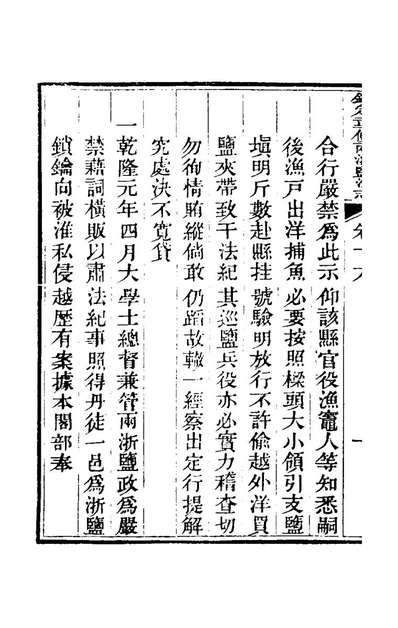 合行嚴禁爲此示仰該縣官役漁竈人等知悉嗣
後漁戸出洋捕魚必要按照樑頭大小領引支鹽
塡明斤數赴縣挂號驗明放行不許偷越外洋買
鹽夾帶致干法紀其廵鹽兵役亦必實力稽查切
勿徇情賄縱倘敢仍蹈故轍一經察出定行提解
究處決不寛貸
一乾隆元年四月大學士總督兼管兩浙鹽政爲嚴
禁藉詞橫販以肅法紀事照得丹徒一邑爲浙鹽
鎖鑰向被淮私侵越歷有案據本閣部奉